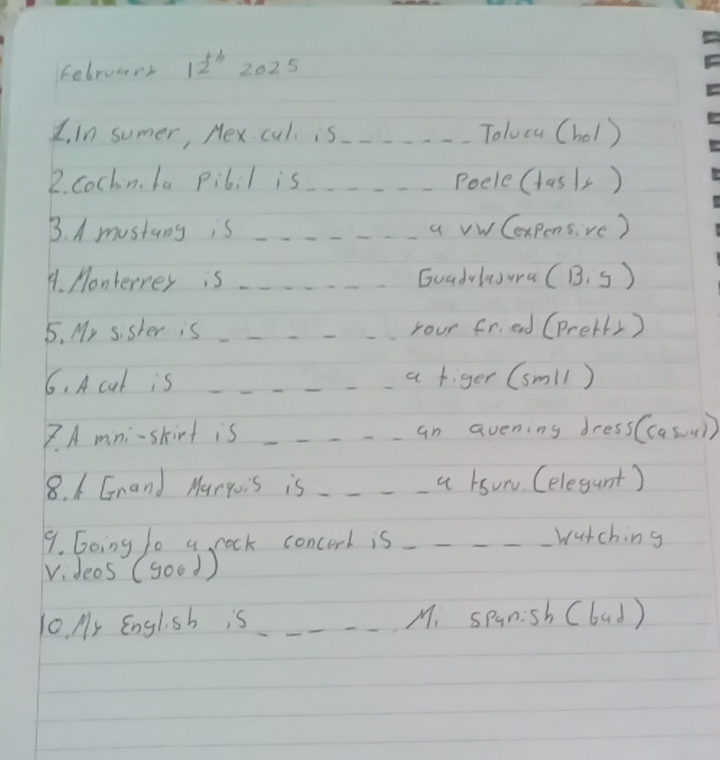 February 12th 2025
1. In sumer, Mexicali is _ _ _ _ _ _ _ Toluca (hot)
2. Cochinita Pibil is _ _ _ _ _ _ Poele (tasty)
3. A mustang is _ _ _ _ _ _ _ a VW (expensive)
4. Monterrey is _ _ _ _ _ _ _ Guadalajara (Big)
5. My sister is _ _ _ _ _ _ your friend (Pretty)
6. A cat is _ _ _ _ _ _ a tiger (smll)
7. A mini-skirt is _ _ _ _ _ an avening dress (casual)
8. A Grand Marquis is _ _ _ _ a tsuru. (elegant)
9. Going to a rock concert is _ _ _ _ _ watching
videos (good)
10. My English is _ _ _ _ _ Mi spanish (bad)